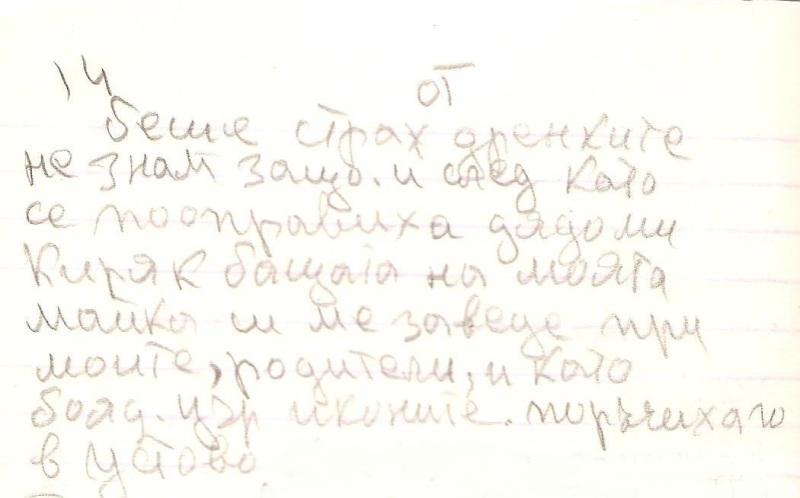 14
от
беше страх дренките
не знам защо. и след като
се пооправиха дядоми
Киряк бащата на моята
майка ги ме заведе при
моите, родители, и като
бояд. цър иконите. поръчихаго
в Устово